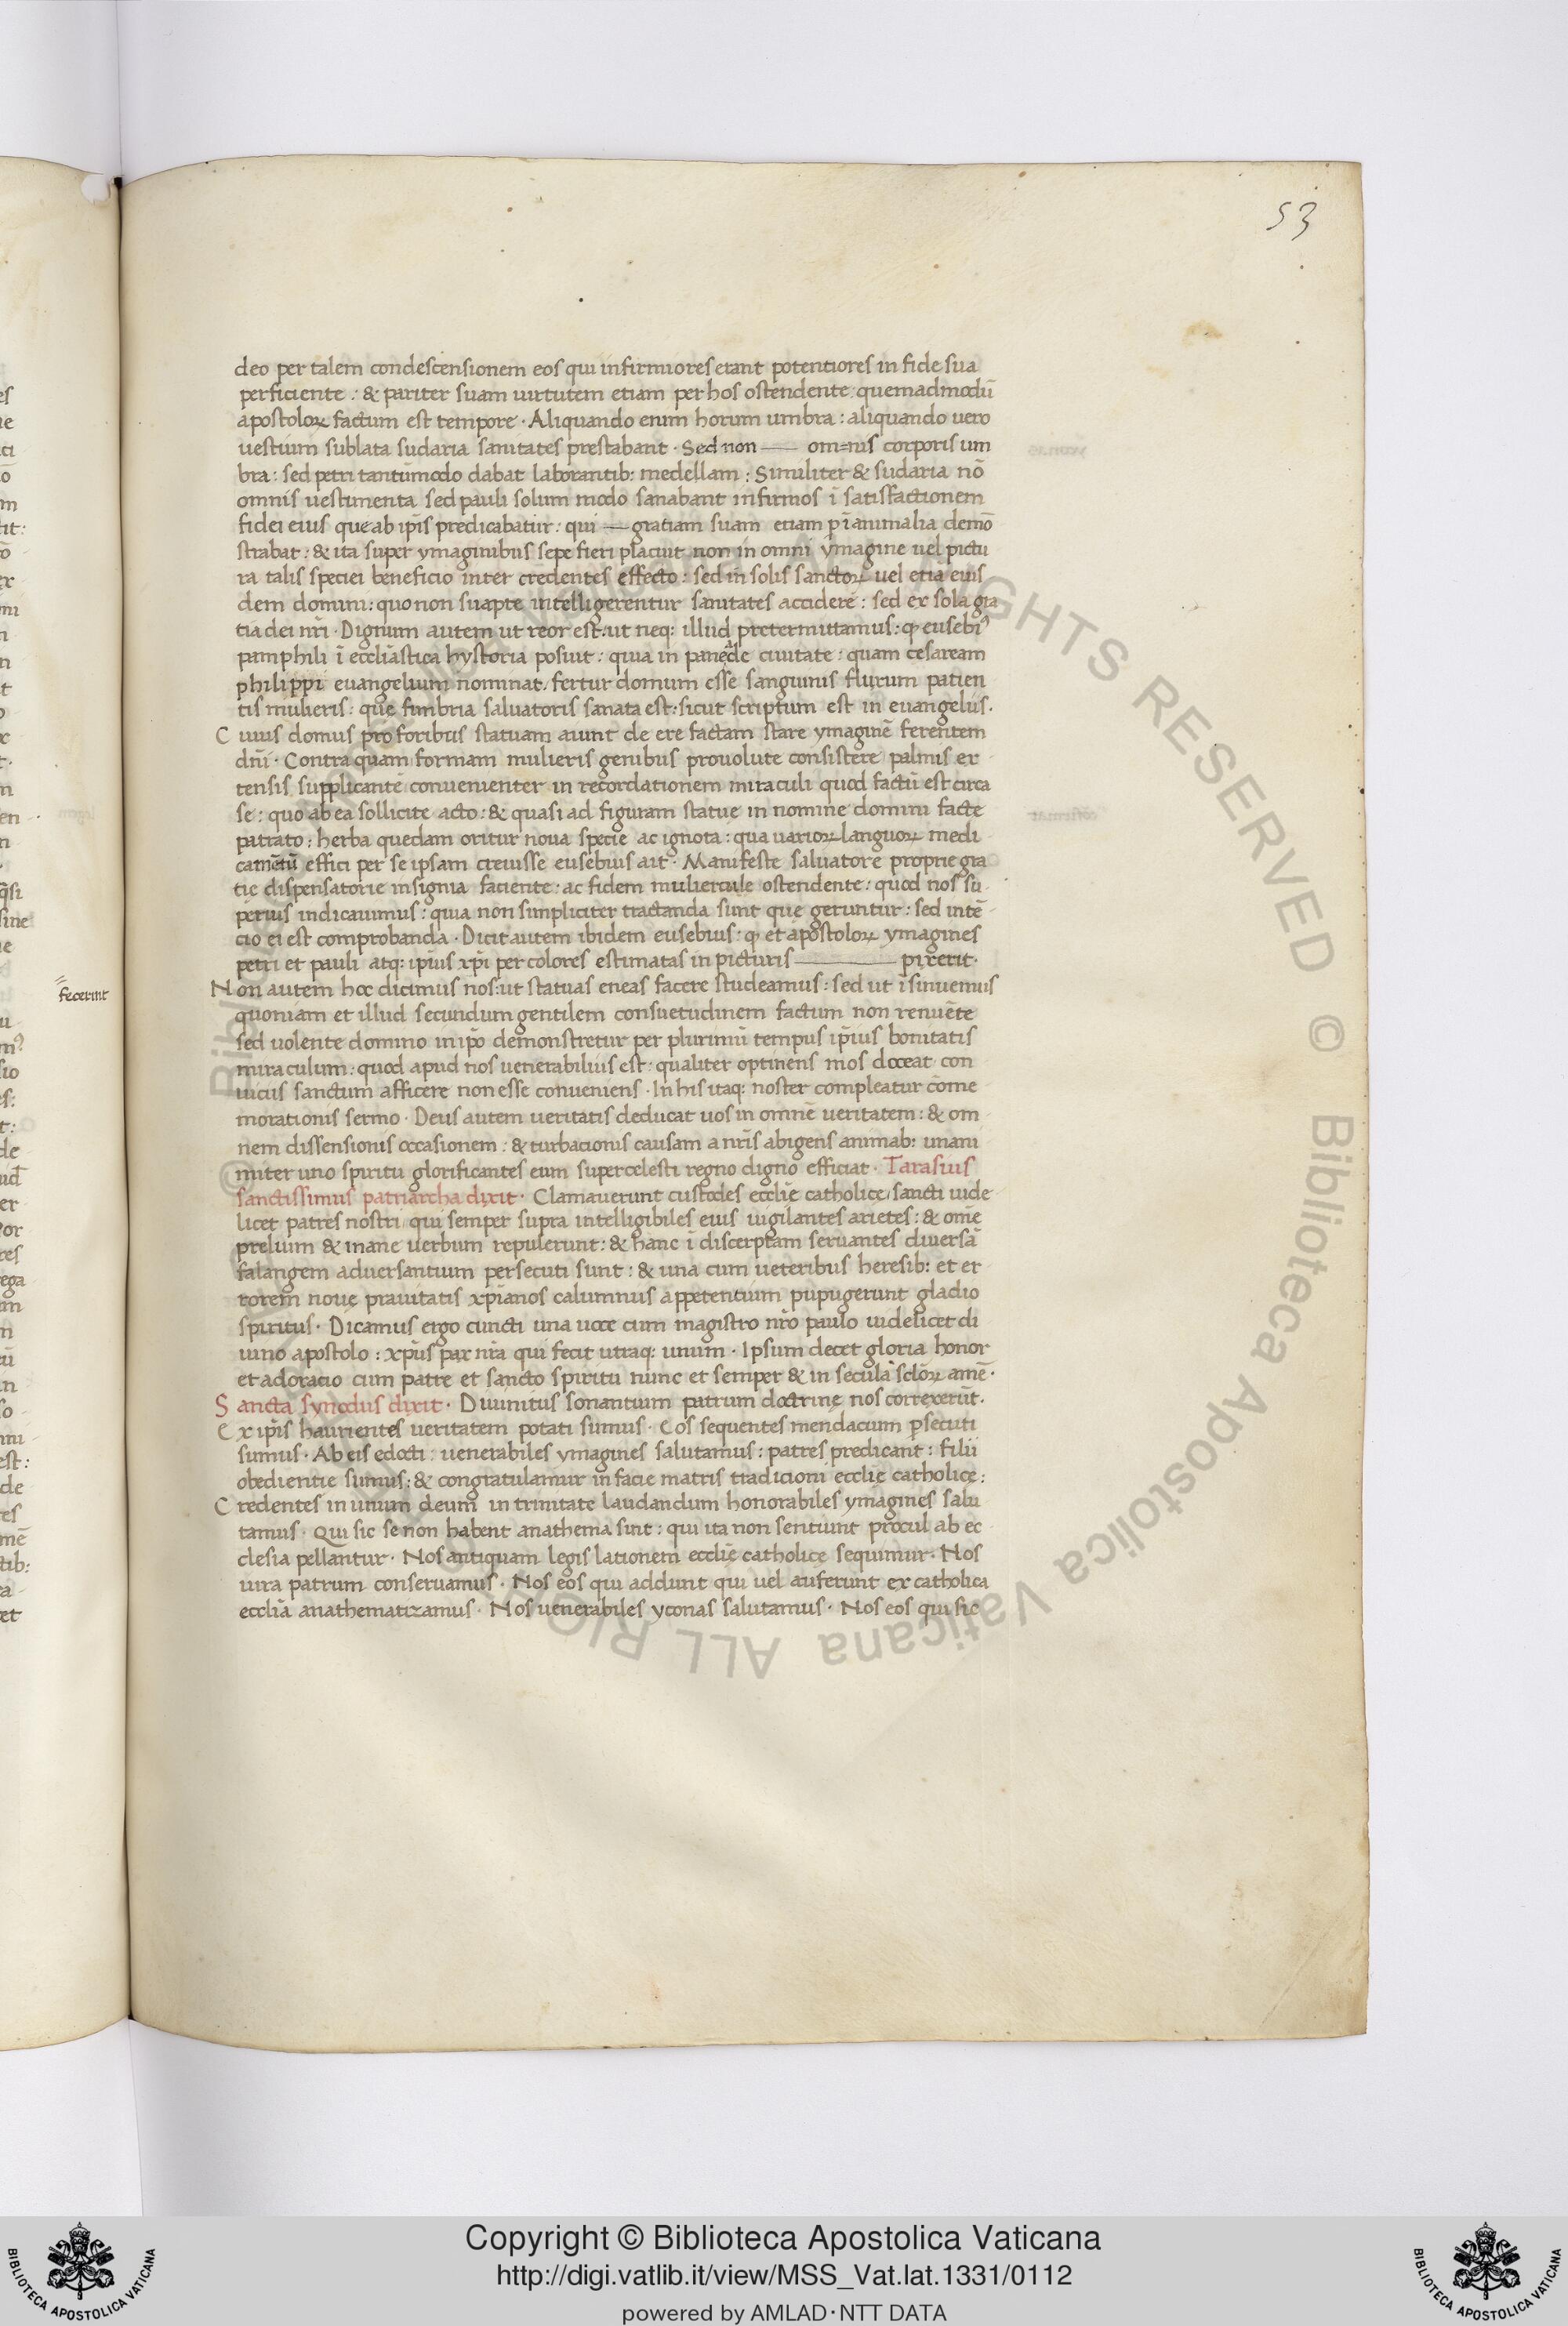 53
deo per talem condescensionem eos qui infirmiores erant potentiores in fide sua
perficiente : & pariter suam uirtutem etiam per hos ostendente quemadmodū
apostoloꝝ factum est tempore · Aliquando enim horum umbra : aliquando uero
uestium sublata sudaria sanitates prestabant · Sed non —— om=nis corporis um
bra : sed petri tantūmodo dabat laborantib: medellam : Similiter & sudaria nō
omnis uestimenta sed pauli solum modo sanabant infirmos ī satisfactionem
fidei eius que ab ip̄is predicabatur : qui — gratiam suam etiam ꝑ īanimalia demō
strabat : & ita super ymaginibus sepe fieri placuit non in omni ymagine uel pictu
ra talis speciei beneficio inter credentes effecto : sed in solis sanctoꝝ uel etiā eius
dem domini : quo non suapte intelligerentur sanitates accidere : sed ex sola gra
tia dei nr̄i · Dignum autem ut reor est : ut neq: illud pretermittamus : ꝙ eusebi9
pamphili ī eccliāstica hystoria posuit : quia in panęde ciuitate : quam cesaream
philippi euangelium nominat. fertur domum esse sanguinis fluxum patien
tis mulieris : que fimbria saluatoris sanata est : sicut scriptum est in euangeliis ·
Cuius domus pro foribus statuam aiunt de ere factam stare ymaginē ferentem
dn̄i · Contra quam formam mulieris genibus prouolute consistere palmis ex
tensis supplicantē conuenienter in recordationem miraculi quod factū est circa
se : quo ab ea sollicite acto : & quasi ad figuram statue in nomine domini facte
patrato : herba quedam oritur noua specie ac ignota : qua uarioꝝ languoꝝ medi
camētū effici per se ipsam creuisse eusebius ait · Manifeste saluatore proprie gra
tie dispensatorie insignia faciente : ac fidem muliercule ostendente : quod nos su
perius indicauimus : quia non simpliciter tractanda sunt que geruntur : sed intē
cio ei est comprobanda · Dicit autem ibidem eusebius : ꝙ et apostoloꝝ ymagines
petri et pauli atq: ip̄ius xp̄i per colores estimatas in picturis ——— pixerit ·
Non autem hoc dicimus nos : ut statuas eneas facere studeamus : sed ut īsinuemus
quoniam et illud secundum gentilem consuetudinem factum non renuēte
sed uolente domino in ip̄o demonstretur per plurimū tempus ip̄ius bonitatis
miraculum : quod apud nos uenerabilius est : qualiter optinens mos doceat con
uiciis sanctum afficere non esse conueniens · In his itaq: noster compleatur cōme
morationis sermo · Deus autem ueritatis deducat uos in omnē ueritatem : & om
nem dissensionis occasionem : & turbacionis causam a nr̄is abigens animab: unani
miter uno spiritu glorificantes eum supercelesti regno digno efficiat · Tarasius
sanctissimus patriarcha dixit · Clamauerunt custodes eccliē catholice sancti uide
licet patres nostri qui semper supra intelligibiles eius uigilantes arietes : & om̄e
prelium & inane uerbum repulerunt : & hanc ī discerptam seruantes diuersā
falangem aduersantium persecuti sunt : & una cum ueteribus heresib: et er
rorem noue prauitatis xp̄ianos calumniis appetentium pupugerunt gladio
spiritus · Dicamus ergo cuncti una uoce cum magistro nr̄o paulo uidelicet di
uino apostolo : xp̄us pax nr̄a qui fecit utraq: unum · Ipsum decet gloria honor
et adoracio cum patre et sancto spiritu nunc et semper & in secula sclōꝝ amē ·
Sancta synodus dixit · Diuinitus sonantium patrum doctrine nos correxerūt ·
Ex ip̄is haurientes ueritatem potati sumus · Eos sequentes mendacium ꝑsecuti
sumus · Ab eis edocti : uenerabiles ymagines salutamus : patres predicant : filii
obedientie sumus : & congratulamur in facie matris tradicioni eccliē catholice :
Credentes in unum deum in trinitate laudandum honorabiles ymagines salu
tamus · Qui sic se non habent anathema sint : qui ita non sentiunt procul ab ec
clesia pellantur · Nos antiquam legis lationem eccliē catholice sequimur · Nos
iura patrum conseruamus · Nos eos qui addunt qui uel auferunt ex catholica
eccliā anathematizamus · Nos uenerabiles yconas salutamus · Nos eos qui sic
fecerint
Copyright © Biblioteca Apostolica Vaticana
http://digi.vatlib.it/view/MSS_Vat.lat.1331/0112
powered by AMLAD·NTT DATA
BIBLIOTECA APOSTOLICA VATICANA
BIBLIOTECA APOSTOLICA VATICANA
© Biblioteca Apostolica Vaticana ALL RIGHTS RESERVED